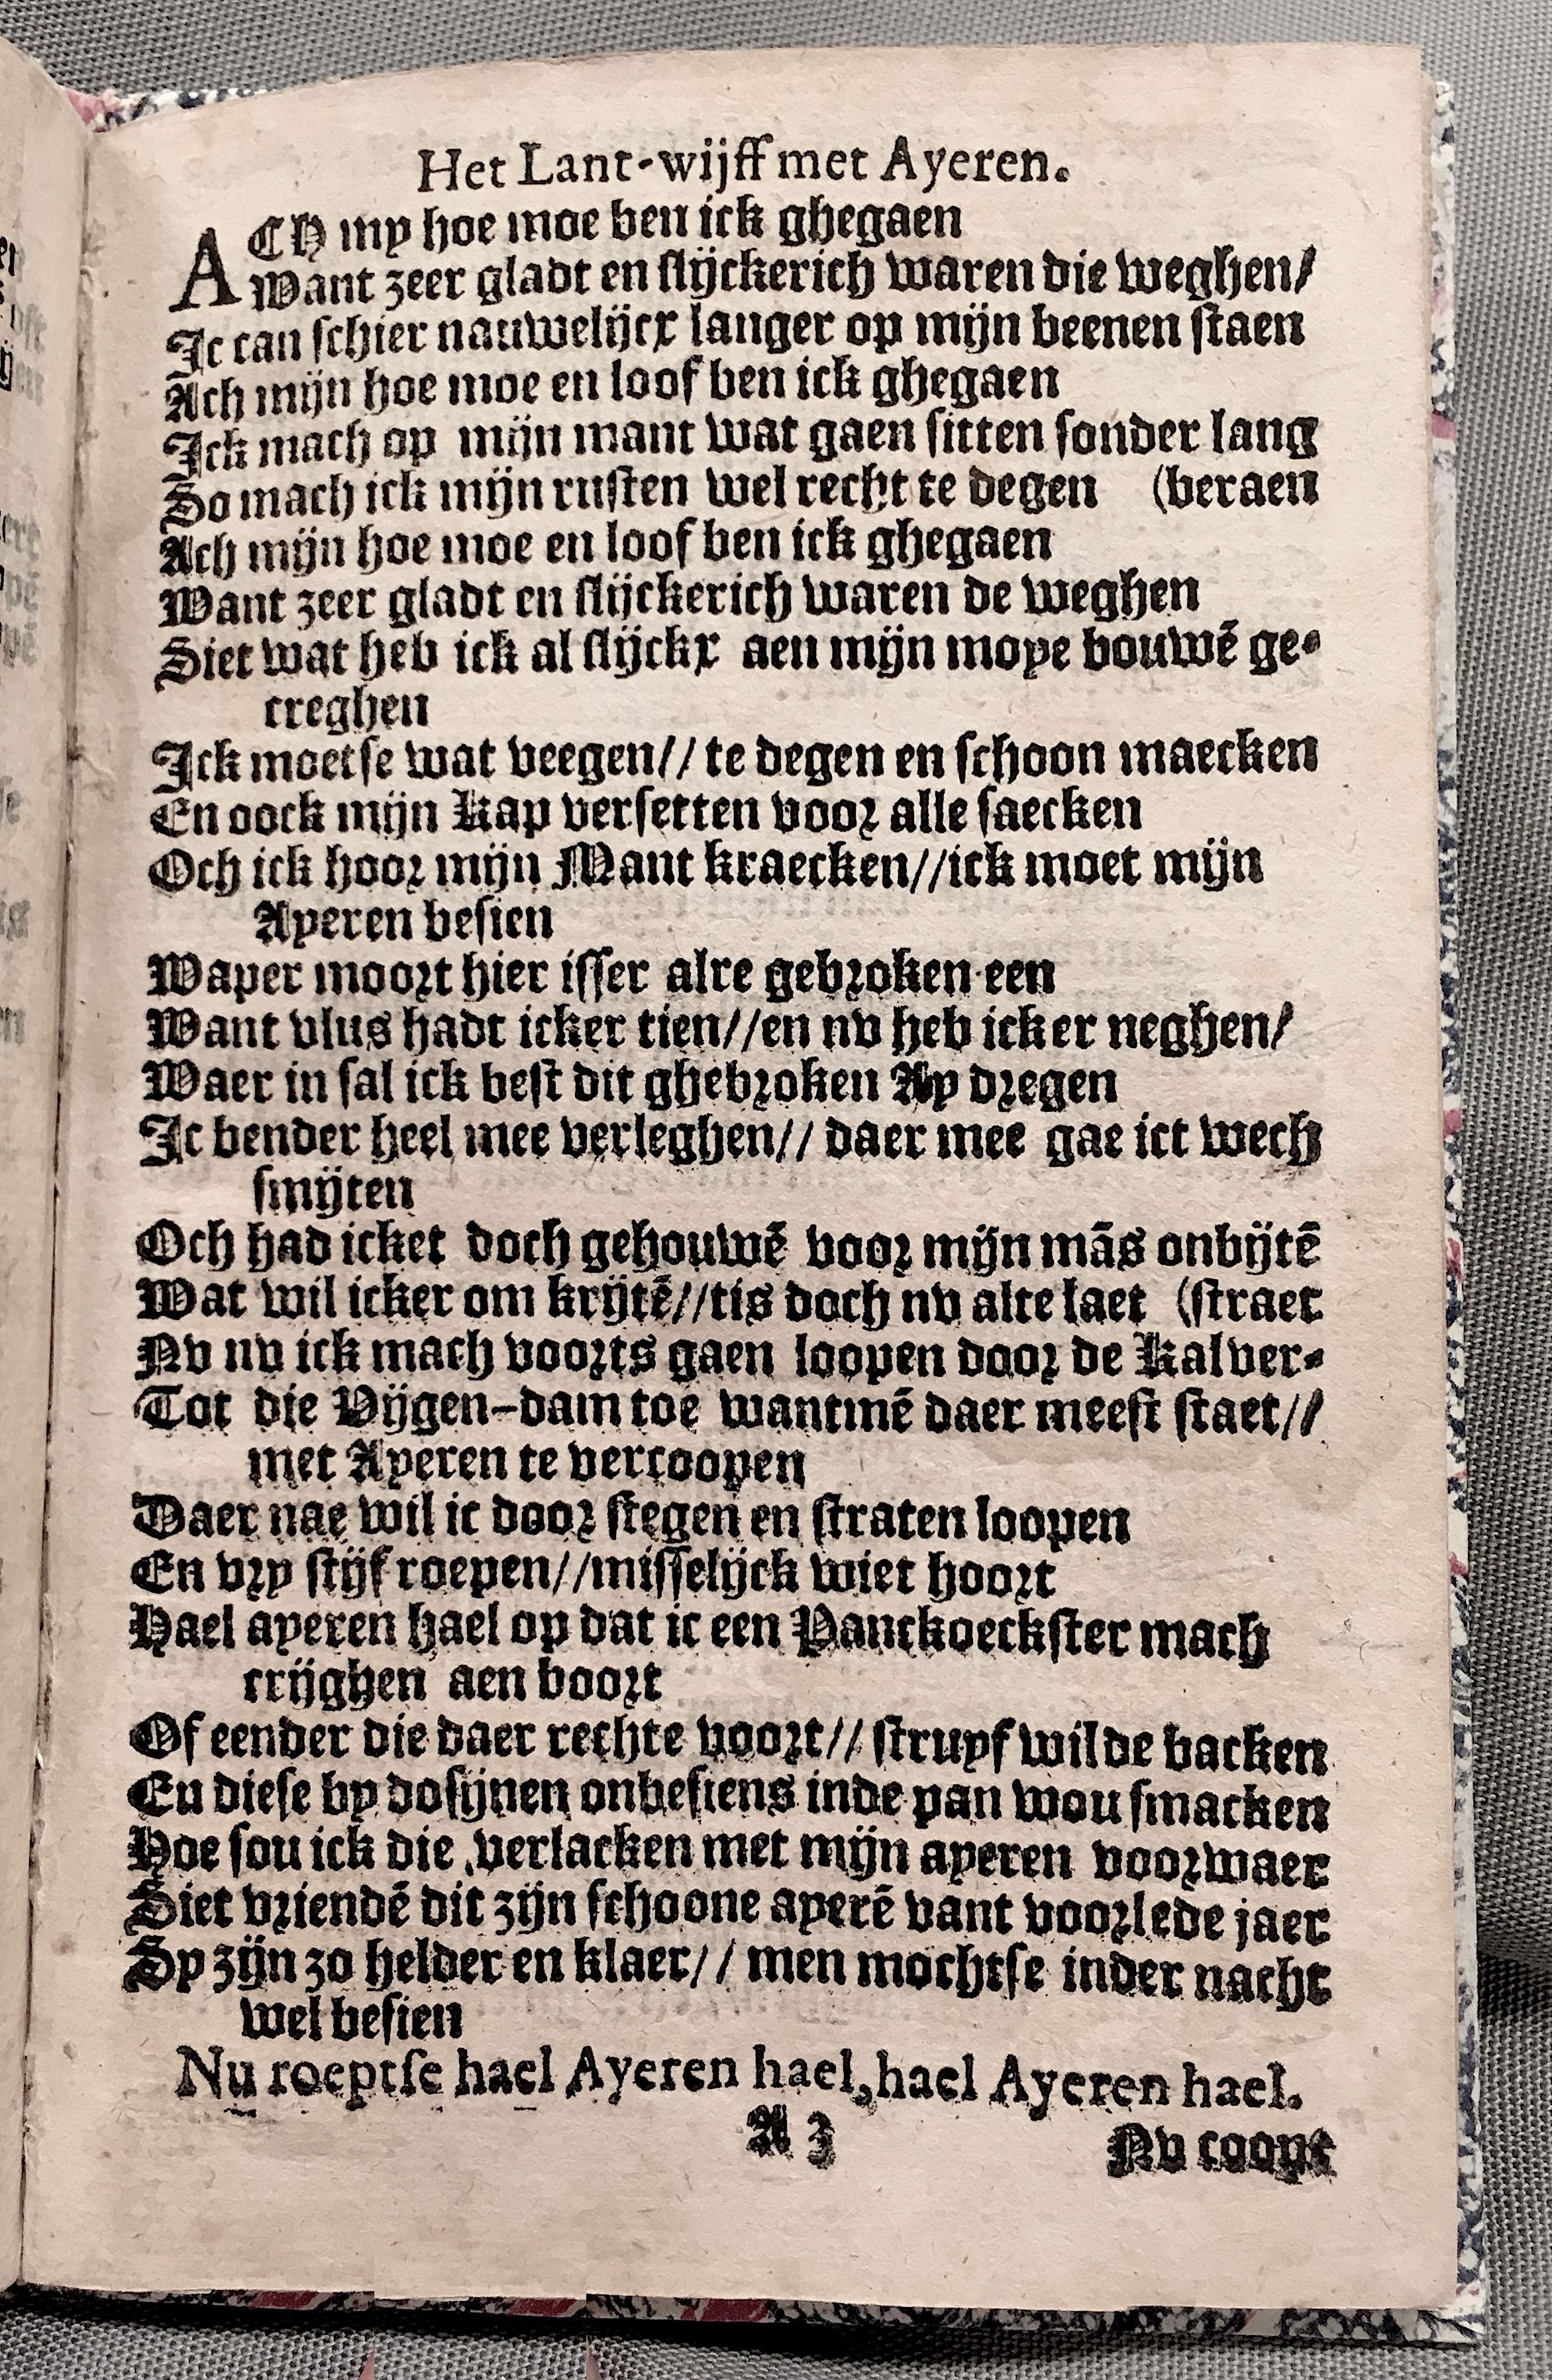 Het Lant-wijff met Ayeren.
ACH my hoe moe ben ick ghegaen
Want zeer gladt en slijckerich waren die weghen/
Ic can schier nauwelijcx langer op mijn beenen staen
Ach mijn hoe moe en loof ben ick ghegaen
Ick mach op mijn mant wat gaen sitten sonder lang
So mach ick mijn rusten wel recht te degen (beraen
Ach mijn hoe moe en loof ben ick ghegaen
Want zeer gladt en slijckerich waren de weghen
Siet wat heb ick al slijckx aen mijn moye bouwē ge-
creghen
Ick moetse wat veegen// te degen en schoon maecken
En oock mijn Kap versetten voor alle saecken
Och ick hoor mijn Mant kraecken//ick moet mijn
Ayeren besien
Wayer moort hier isser alre gebroken een
Want vlus hadt icker tien//en nv heb icker neghen/
Waer in sal ick best dit ghebroken Ay dregen
Ic bender heel mee verleghen// daer mee gae ict wech
smijten
Och had icket doch gehouwē voor mijn mās onbijtē
Wat wil icker om krijtē//tis doch nv alte laet (straet
Nv nv ick mach voorts gaen loopen door de Kalver-
Tot die Vijgen-dam toe wantmē daer meest staet//
met Ayeren te vercoopen
Daer nae wil ic door stegen en straten loopen
En vry stijf roepen//misselijck wiet hoort
Hael ayeren hael op dat ic een Panckoeckster mach
crijghen aen boort
Of eender die daer rechte voort// struyf wilde backen
En diese by dosijnen onbesiens inde pan wou smacken
Hoe sou ick die verlacken met mijn ayeren voorwaer
Siet vriendē dit zijn schoone ayerē vant voorlede jaer
Sy zijn zo helder en klaer// men mochtse inder nacht
wel besien
Nu roeptse hael Ayeren hael, hael Ayeren hael.
A 3
Nv coopt